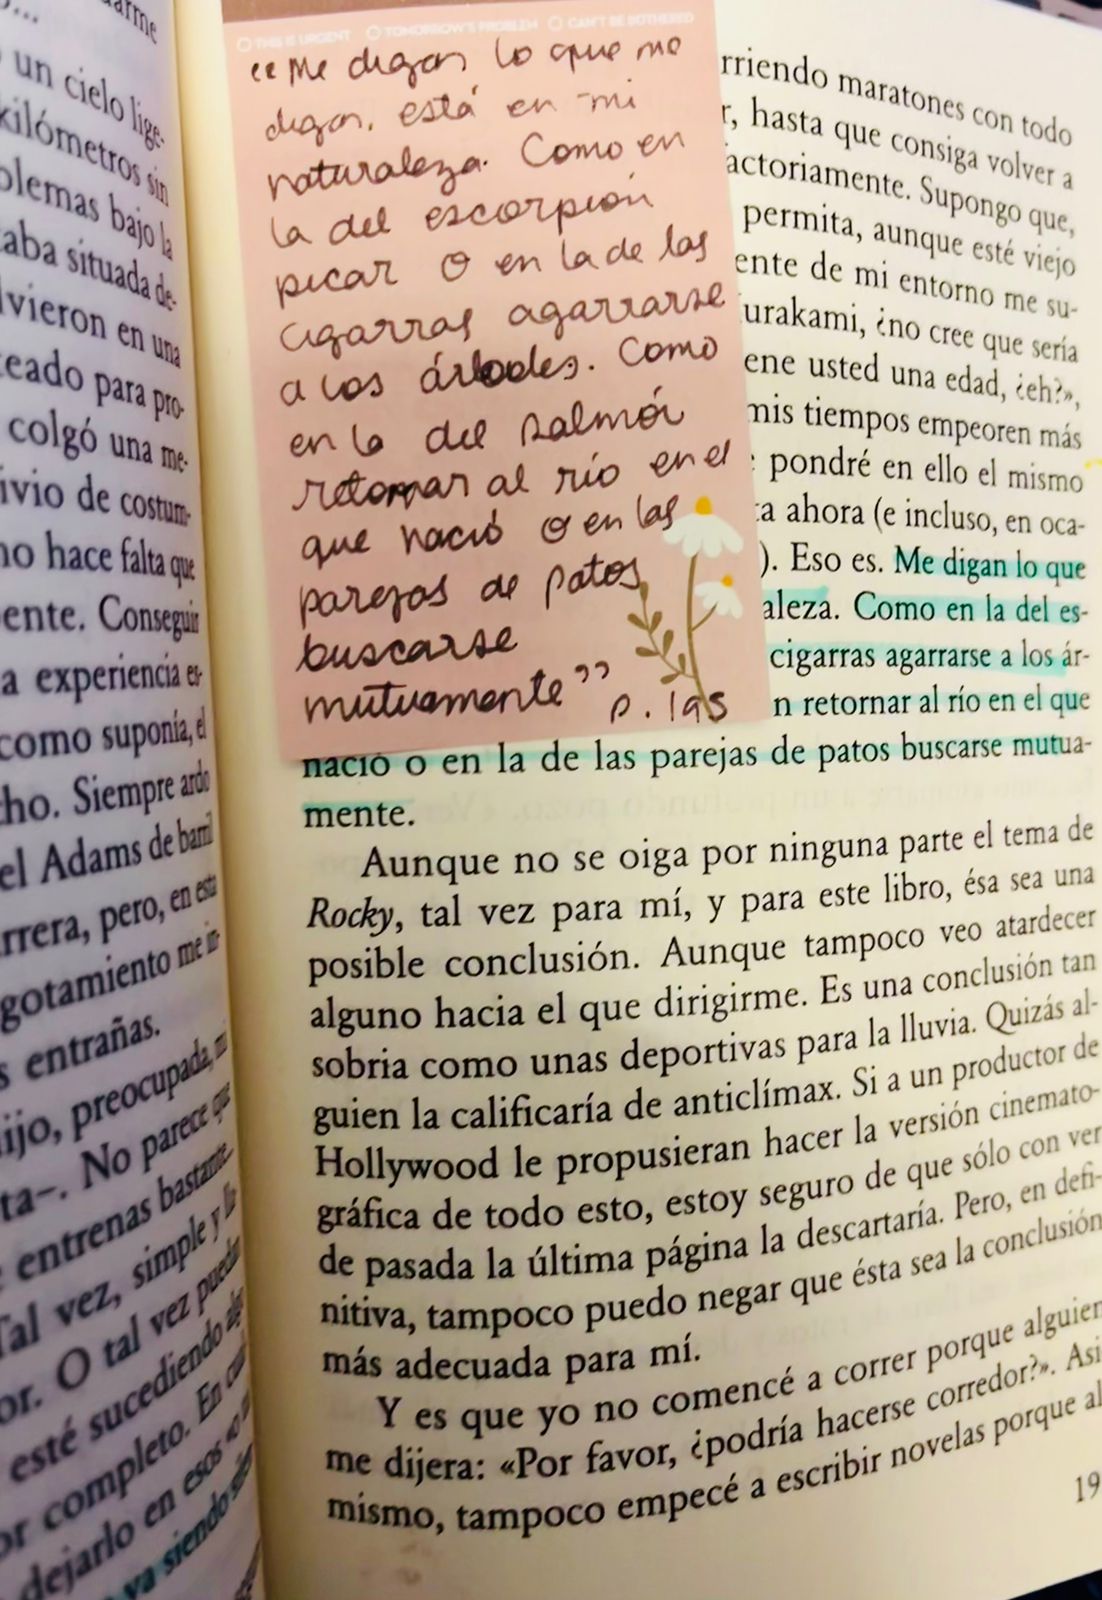 ...
arme
un cielo lige-
kilómetros sin
blemas bajo la
aba situada de-
lvieron en una
teado para pro-
colgó una me-
ivio de costum-
no hace falta que
ente. Conseguir
a experiencia es-
como suponía, el
cho. Siempre ardo
el Adams de barril
rrera, pero, en esta
gotamiento me in-
s entrañas.
ijo, preocupada, mi
ta–. No parece que
entrenas bastante.
Tal vez, simple y lla
or. O tal vez pueda
esté sucediendo algo
or completo. En cual
dejarlo en esos
ya siendo
THIS IS URGENT TOMORROW'S PROBLEM CAN'T BE BOTHERED
“Me digan lo que me
digan, está en mi
naturaleza. Como en
la del escorpión
picar o en la de las
cigarras agarrarse
a los árboles. Como
en la del salmón
retornar al río en el
que nació o en las
parejas de patos
buscarse
mutuamente” p. 195
rriendo maratones con todo
r, hasta que consiga volver a
actoriamente. Supongo que,
permita, aunque esté viejo
ente de mi entorno me su-
urakami, ¿no cree que sería
ene usted una edad, ¿eh?»,
mis tiempos empeoren más
pondré en ello el mismo
ta ahora (e incluso, en oca-
). Eso es. Me digan lo que
aleza. Como en la del es-
cigarras agarrarse a los ár-
n retornar al río en el que
nació o en la de las parejas de patos buscarse mutua-
mente.
Aunque no se oiga por ninguna parte el tema de
Rocky, tal vez para mí, y para este libro, ésa sea una
posible conclusión. Aunque tampoco veo atardecer
alguno hacia el que dirigirme. Es una conclusión tan
sobria como unas deportivas para la lluvia. Quizás al-
guien la calificaría de anticlímax. Si a un productor de
Hollywood le propusieran hacer la versión cinemato-
gráfica de todo esto, estoy seguro de que sólo con ver
de pasada la última página la descartaría. Pero, en defi-
nitiva, tampoco puedo negar que ésta sea la conclusión
más adecuada para mí.
Y es que yo no comencé a correr porque alguien
me dijera: «Por favor, ¿podría hacerse corredor?». Asi
mismo, tampoco empecé a escribir novelas porque al
19